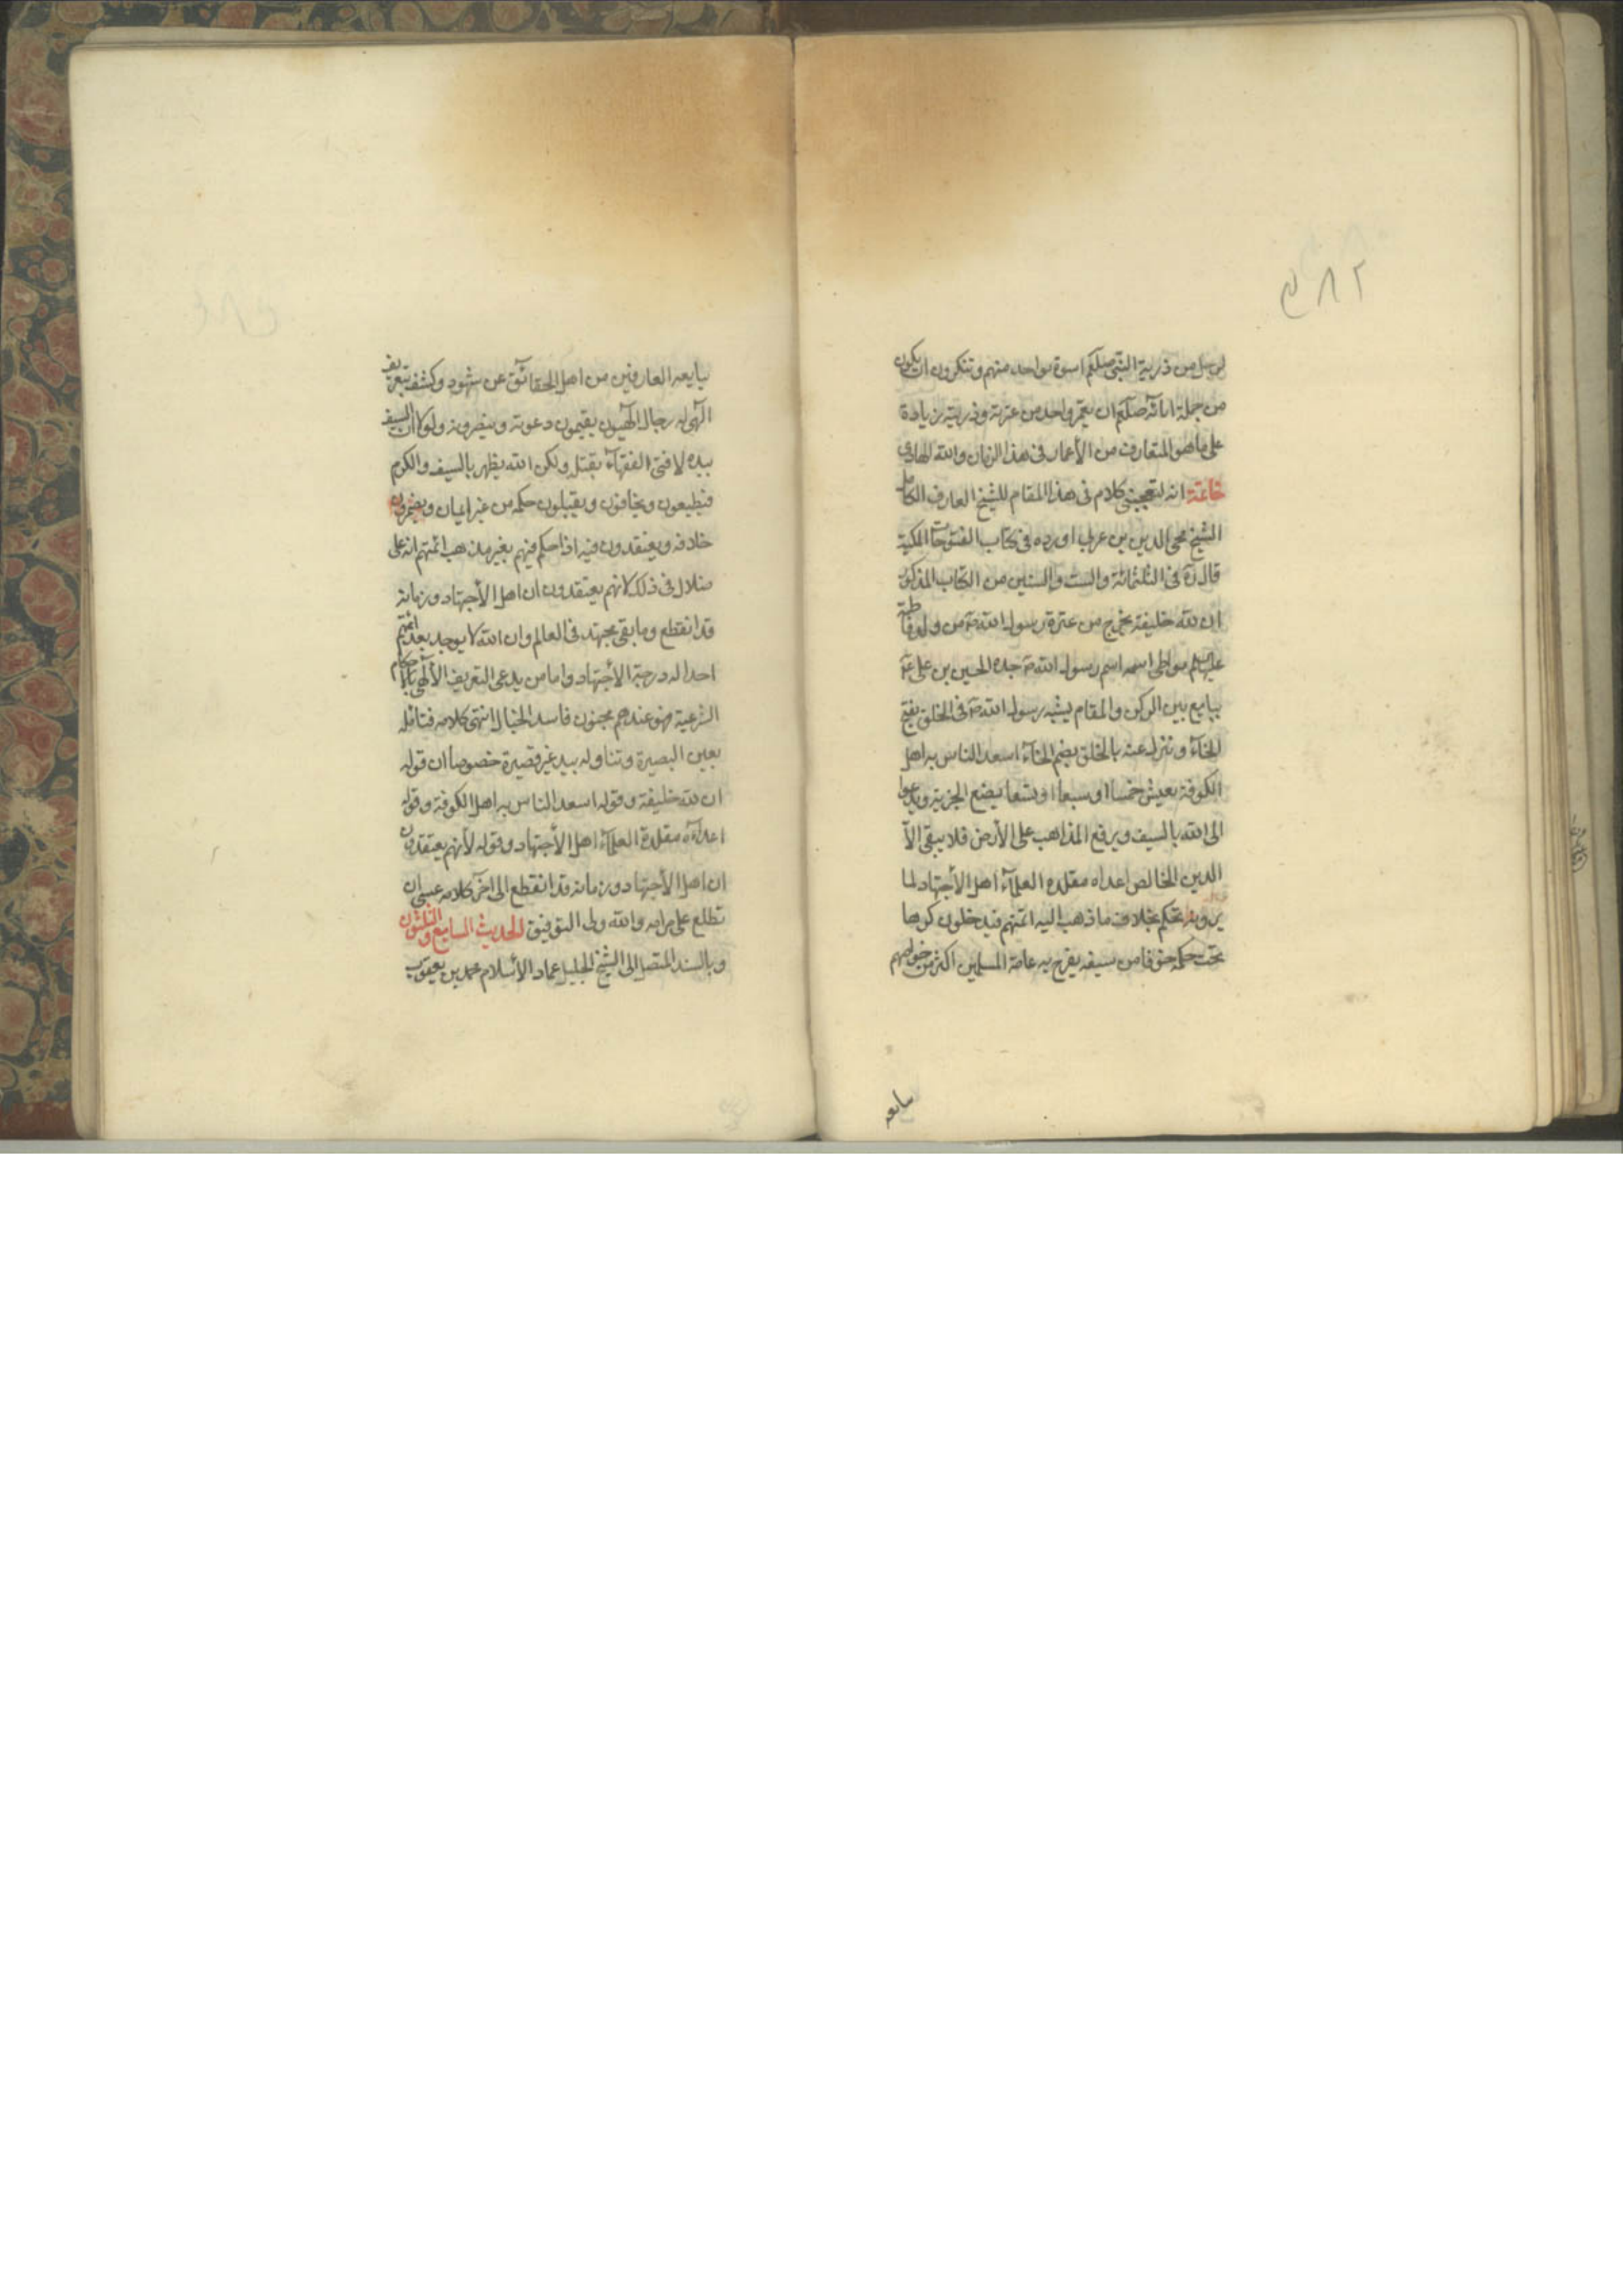 لرجل من ذرية النبي صلكم اسوة بواحد منهم وتنكرون ان يكون
من جملة اياته صلكم ان يعمر واحد من عترته وذريته زيادة
على ما هو المتعارف من الأعمار فى هذا الزمان والله الهادى
خاتمة انه ليعجبنى كلام فى هذا المقام للشيخ العارف الكامل
الشيخ محى الدين بن عربى اورده فى كتاب الفتوحات المكية
قال ره فى الثلثمائة والست والستين من الكتاب المذكور
ان لله خليفة يخرج من عترة رسول الله ص من ولد فاطمة
عليهالسلم يواطى اسمه اسم رسول الله ص جده الحسين بن على ع
يبايع بين الركن والمقام يشبه رسول الله ص فى الخلق بفتح
الخاء وننزل عنه بالخلق بضم الخاء اسعد الناس به اهل
الكوفة يعيش خمسا او سبعا او تسعا يضع الجزية ويدعوا
الى الله بالسيف ويرفع المذاهب على الأرض فلا يبقى الا
الدين الخالص اعداه مقلده العلماء اهل الأجتهاد لما
يرونه يحكم بخلاف ما ذهب اليه ائمتهم فيدخلون كرها
تحت حكمه خوفا من سيفه يفرح به عامة المسلمين اكثر من خواصهم
يبايعه
۲۸۵
يبايعه العارفين من اهل الحقائق عن شهود وكشف بتعريف
الهى له رجال الهيون يقيمون دعوته وينصرونه ولولا ان السيف
بيده لافتى الفقهاء بقتله ولكن الله يظهر بالسيف والكرم
فيطيعون ويخافون ويقبلون حكمه من غير ايمان ويضمرون
خلافه ويعتقدون فيه اذا حكم فيهم بغير مذهب ائمتهم انه على
ضلال فى ذلك لانهم يعتقدون ان اهل الأجتهاد وزمانه
قد انقطع وما بقى مجتهد فى العالم وان الله لا يوجد بعد ائمتهم
احدا له درجة الأجتهاد واما من يدعى التعريف الألهى بالأحكام
الشرعية فهو عندهم مجنون فاسد الخيال انتهى كلامه فتامله
بعين البصيرة وتناوله بيد غير قصيرة خصوصا ان قوله
ان لله خليفة وقوله اسعد الناس به اهل الكوفة وقوله
اعداءه مقلدة العلماء اهل الأجتهاد وقوله لأنهم يعتقدون
ان اهل الأجتهاد وزمانه قد انقطع الى اخر كلامه عسى ان
تطلع على مرامه والله ولى التوفيق الحديث السابع والثلثون
وبالسند المتصل الى الشيخ الجليل عماد الأسلام محمد بن يعقوب